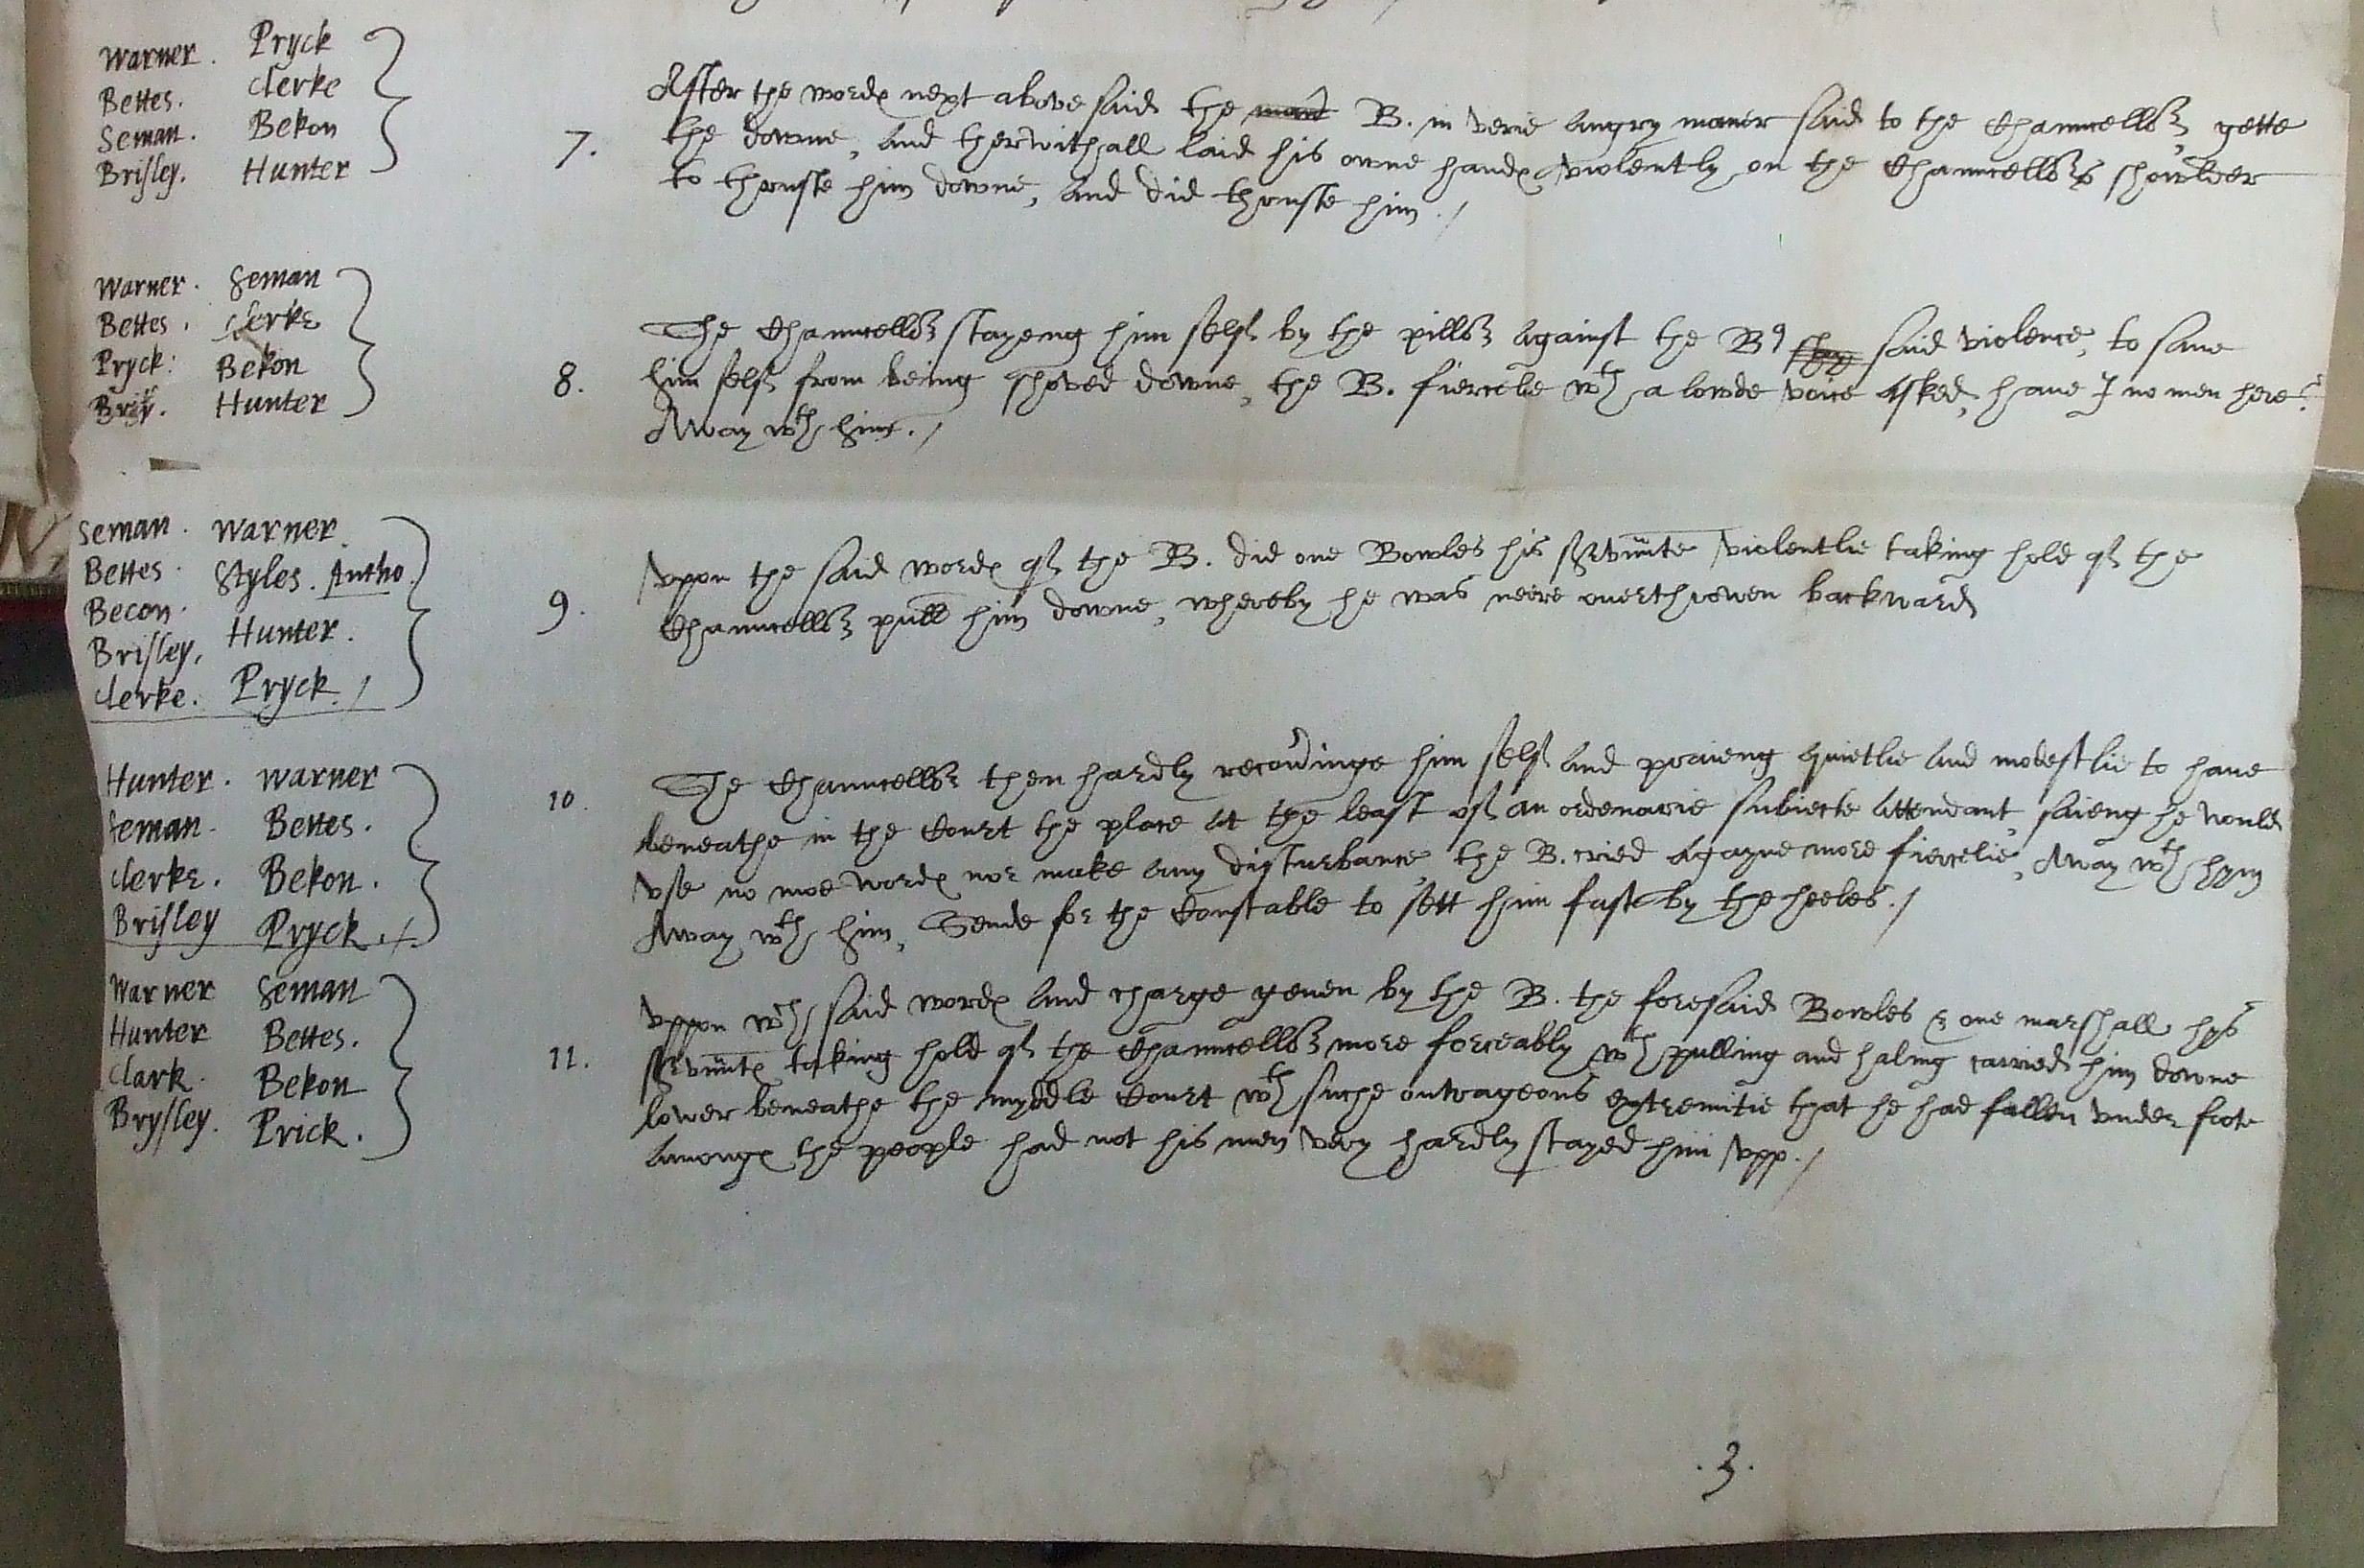 Warner . Pryck
Bettes. Clerke
Seman . Bekon
Brisley. Hunter
7.
After the wordes next above said the B. in verie angry maner said to the Chauncellor, gette
the downe, and therwithall laid his owne handes violently on the Chauncellors showlder
to thruste him downe, and did thruste him ./
Warner . Seman
Bettes . Clerke
Pryck: Bekon
Brisley. Hunter
8.
The Chauncellor stayeng him self by the pillor against the B9 said violence, to save
him self from being shoved downe, the B. fiercelie wth a lowde voice asked, have I no men here?
Away wth him. /
Seman . Warner.
Bettes . Styles. Antho.
Becon. Hunter.
Brisley. Pryck. /
Clerke.
9.
Vpon the said wordes of the B. did one Bowles his servante violentlie taking hold of the
Chauncellor pull him downe, whereby he was neere overthrowen backward
Hunter . Warner
Seman . Bettes .
Clerke . Bekon .
Brisley Pryck ./.
10.
The Chauncellor then hardly recoueringe him self and praieng quietlie and modestlie to have
beneathe in the Court the place at the least of an ordenarie subiecte attendant, saieng he would
vse no moe wordes nor make any disturbance, the B. cried agayne more fiercelie, Away wth hym
Away wth him, Sende for the Constable to sett him fast by the heeles ./
Warner Seman
Hunter Bettes.
Clark . Bekon
Brysley. Prick .
11.
Vppon wch said wordes and charge geven by the B. the foresaid Bowles & one marshall hys
servuntes taking hold of the Chauncellor more forceably wth pulling and haling carried him downe
lower beneathe the myddle Court wth suche outrageous extremitie that he had fallen vnder foote
amonges the people had not his men very hardly stayed him vpp ./
.3.